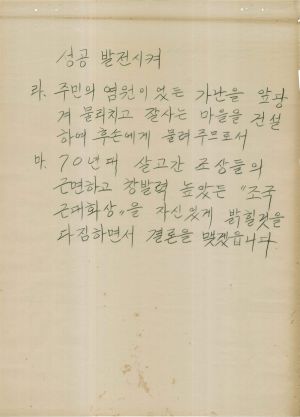 성공 발전시켜
라. 주민의 염원이었든 가난을 앞당
겨 물리치고 잘사는 마을을 건설
하여 후손에게 물려주므로서
마. 70년대 살고간 조상들의
근면하고 창발력 높았든 "조국
근대화상"을 자신있게 밝힐것을
다짐하면서 결론을 맺겠읍니다